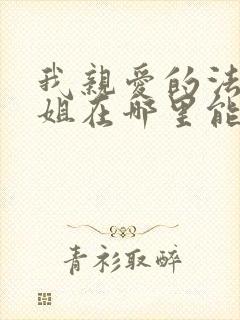 我親愛的法
姐在哪里能
青衫取醉